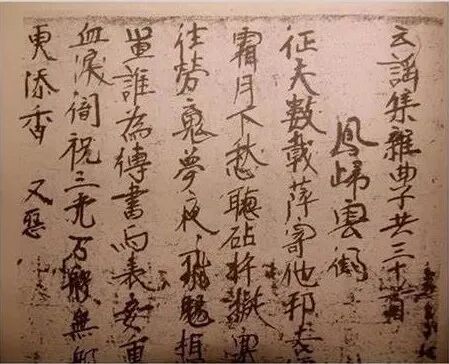 云謠集雜曲子共三十首
鳳歸雲徧
征夫數載萍寄他邦去
霜月下愁聽砧杵擬塞
往勞魂夢夜〻飛颺想
量誰為傳書與表妾衷
血淚闇祝三光万般無那
更添香 又怨